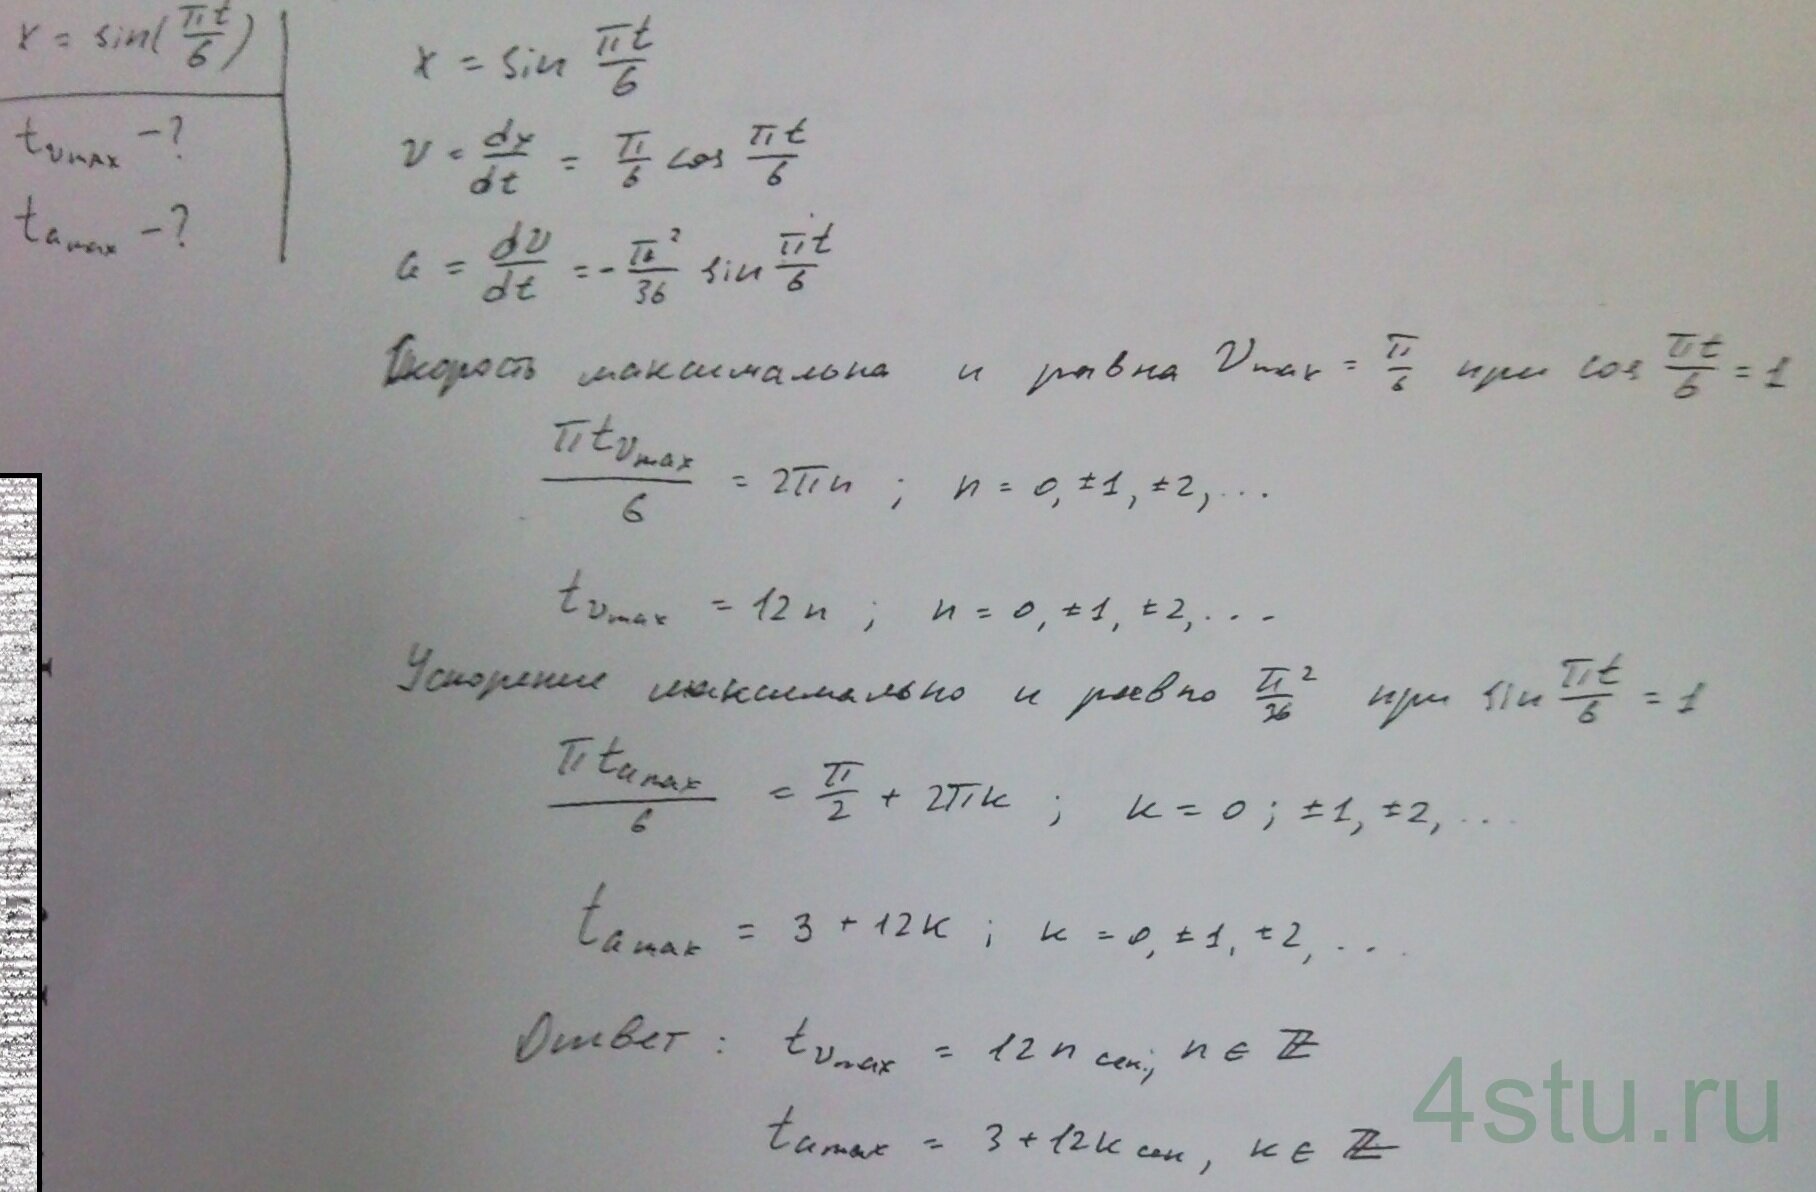 x = sin(πt/6)
t_vmax -?
t_amax -?
x = sin πt/6
v = dx/dt = π/6 cos πt/6
a = dv/dt = - π²/36 sin πt/6
Скорость максимальна и равна V_max = π/6 при cos πt/6 = 1
πt_vmax/6 = 2πn ; n = 0, ±1, ±2, ...
t_vmax = 12n ; n = 0, ±1, ±2, ...
Ускорение максимально и равно π²/36 при sin πt/6 = 1
πt_amax/6 = π/2 + 2πk ; k = 0 ; ±1, ±2, ...
t_amax = 3 + 12k ; k = 0, ±1, ±2, ...
Ответ : t_vmax = 12n сек; n ∈ ℤ
t_amax = 3 + 12k сек, k ∈ ℤ
4stu.ru